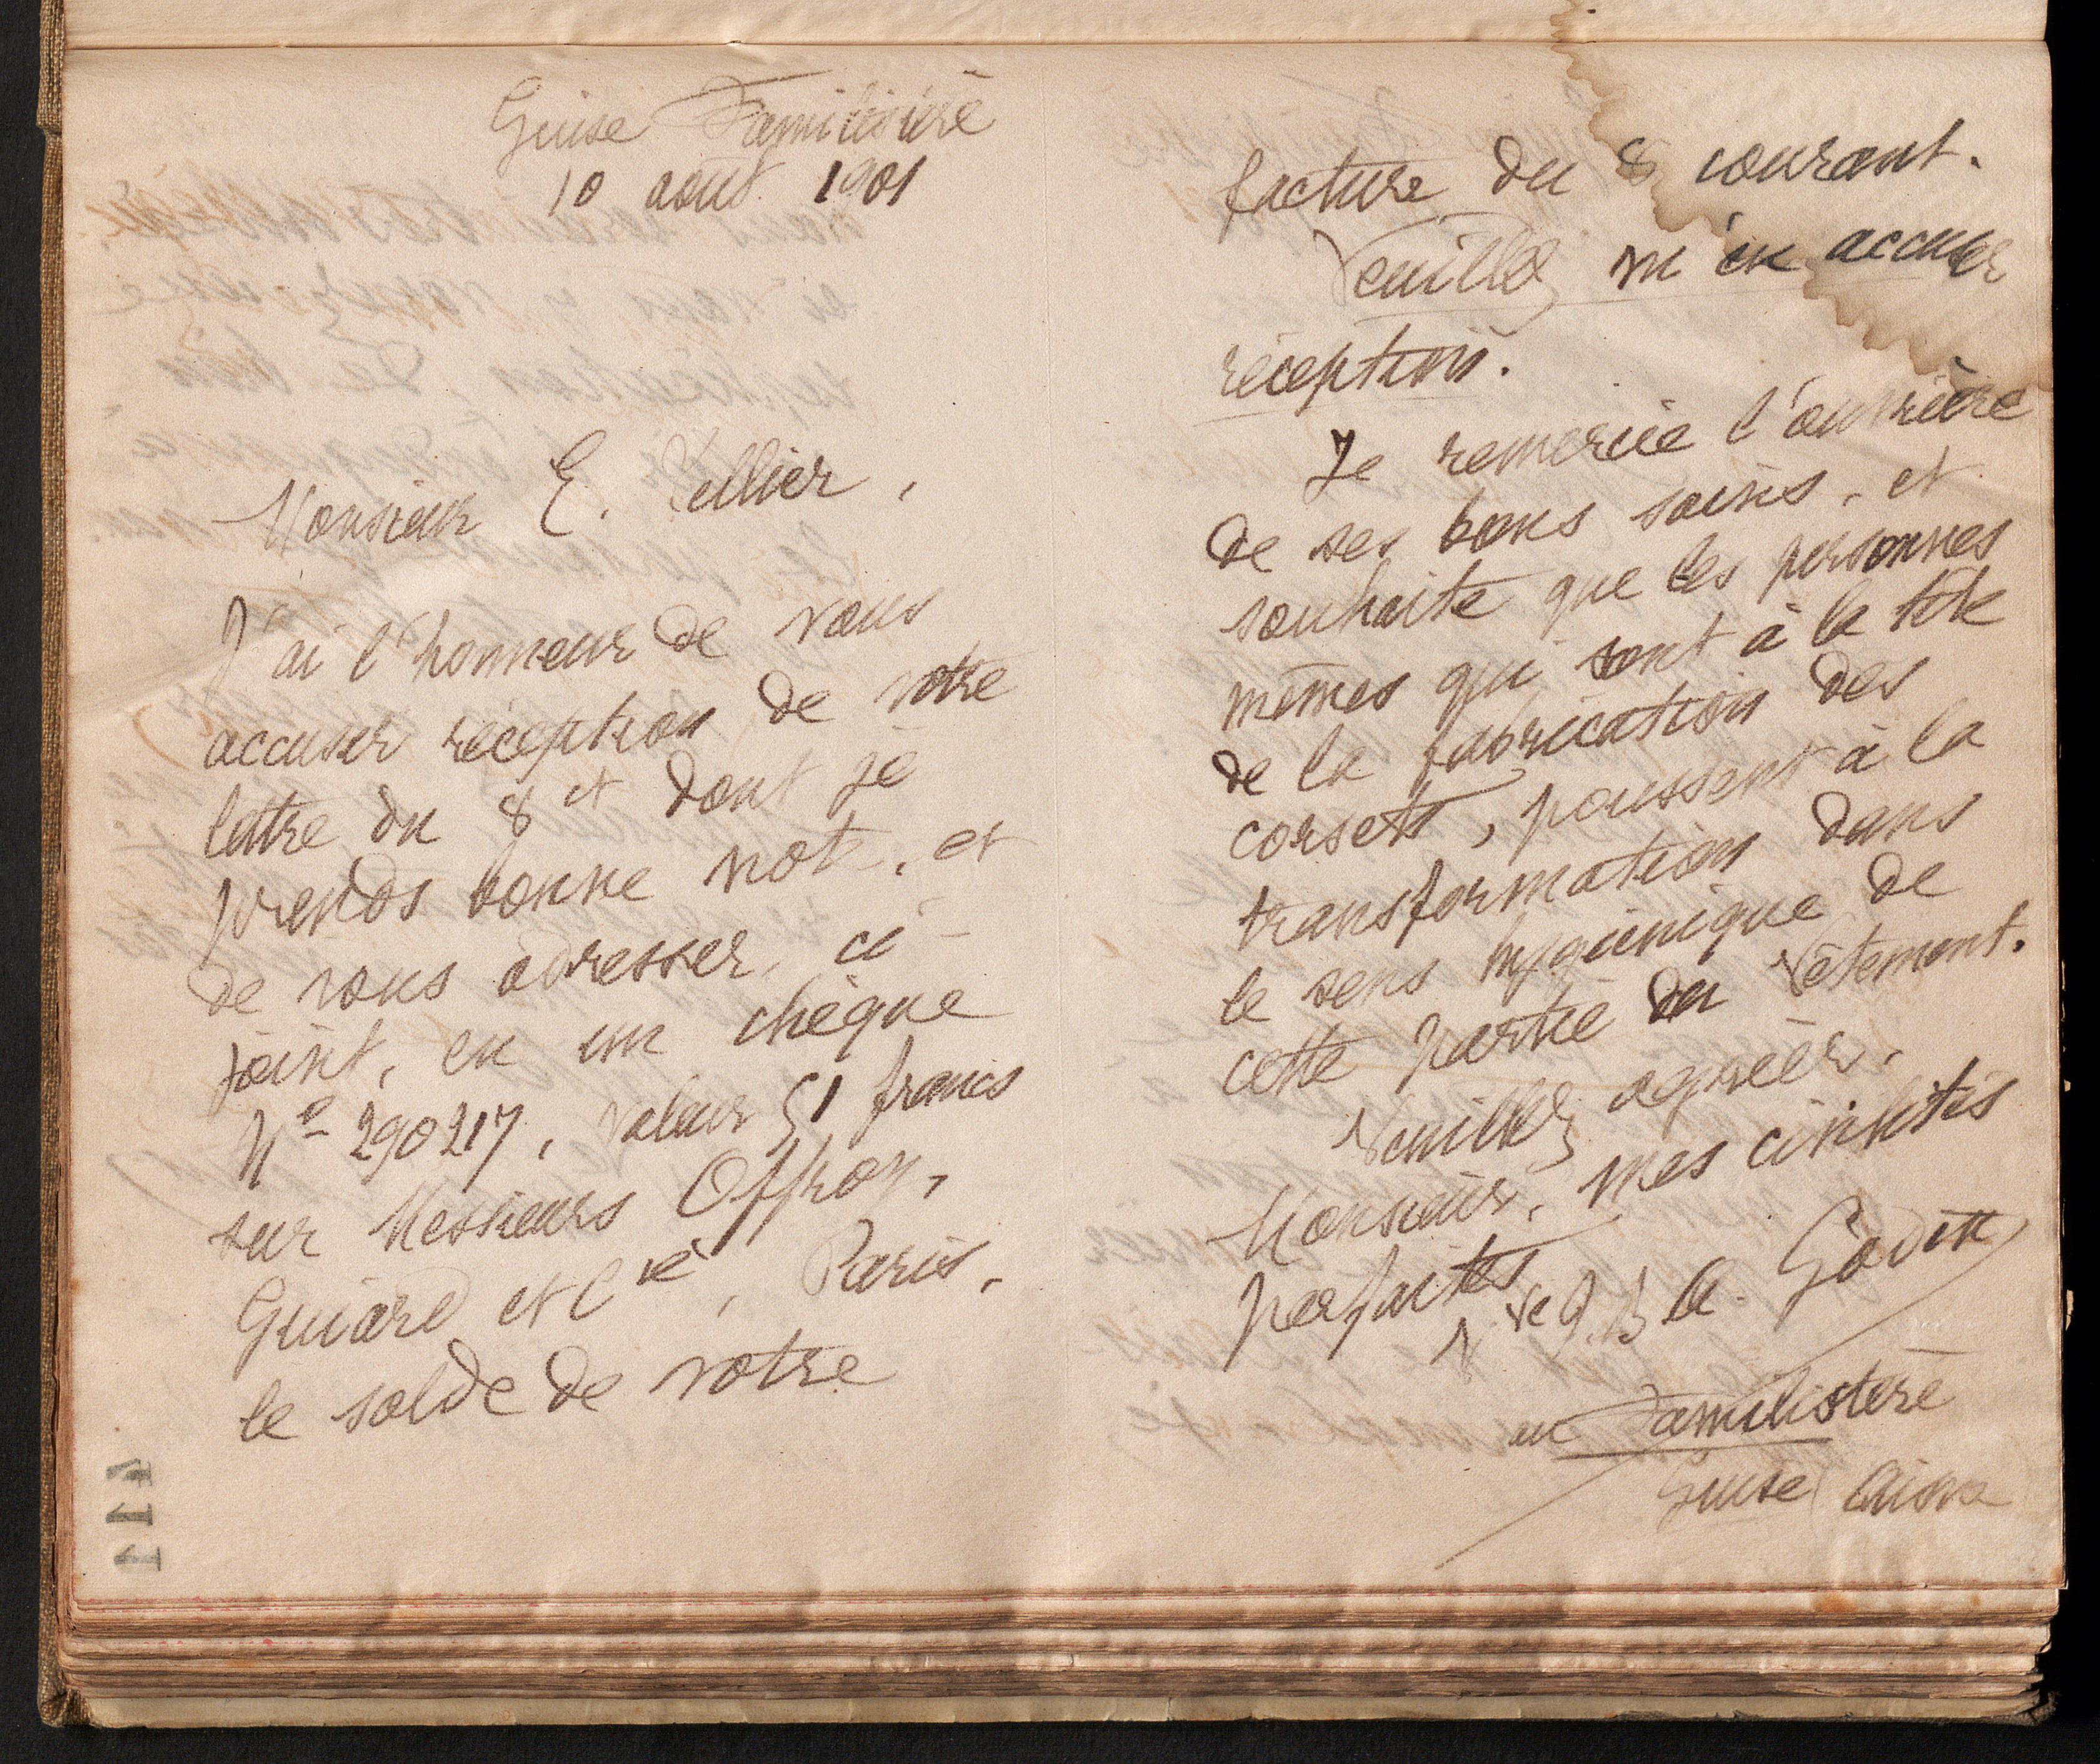 Guise Familistère
10 août 1901
Monsieur E. Tellier,
J'ai l'honneur de vous
accuser réception de votre
lettre du 8 ct dont je
prends bonne note, et
de vous adresser, ci-
joint, en un chèque
No 290217, valeur 51 francs
sur Messieurs Offroy,
Guiard et Cie, Paris,
le solde de votre
111
facture du 8 courant.
Veuillez m'en accuser
réception.
Je remercie l'ouvrière
de ses bons soins, et
souhaite que les personnes
mêmes qui sont à la tête
de la fabrication des
corsets, poussent à la
transformation dans
le sens hygiénique de
cette partie du vêtement.
Veuillez agréer,
Monsieur, mes civilités
parfaites
Vve J. Bte. Godin
au Familistère
Guise Aisne